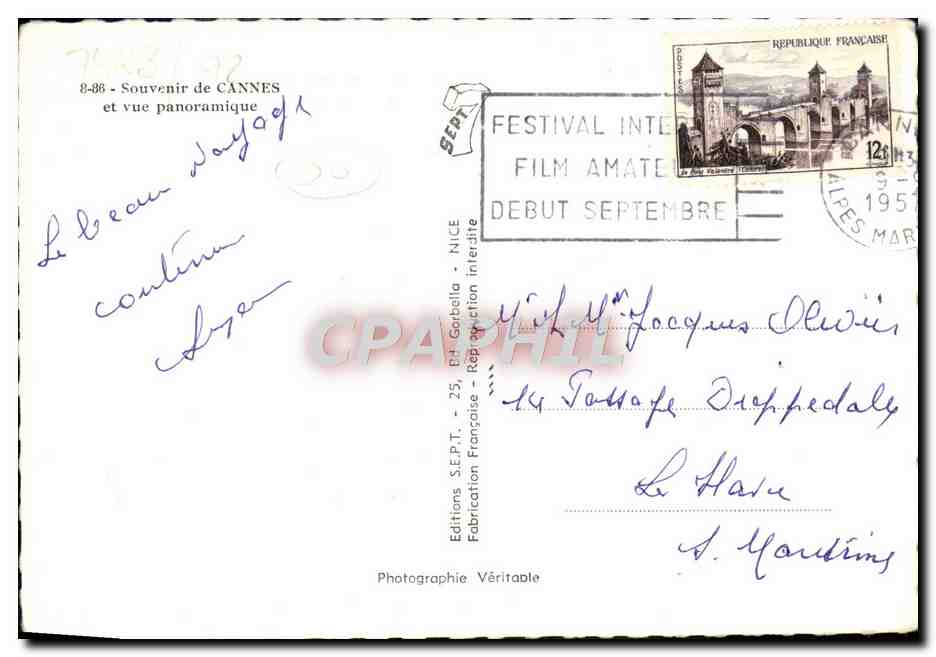 8-86 - Souvenir de CANNES
et vue panoramique
Le beau voyage
continue
SEPT
Editions S.E.P.T. - 25, Bd Gorbella - NICE
Fabrication Française - Reproduction interdite
Photographie Véritable
REPUBLIQUE FRANÇAISE
POSTES
12f
FESTIVAL INTE
FILM AMATE
DEBUT SEPTEMBRE
1957
ALPES MAR
CPAPHIL
Jacques Olivier
14 Passage Dieppedalle
Le Havre
S. Maritime